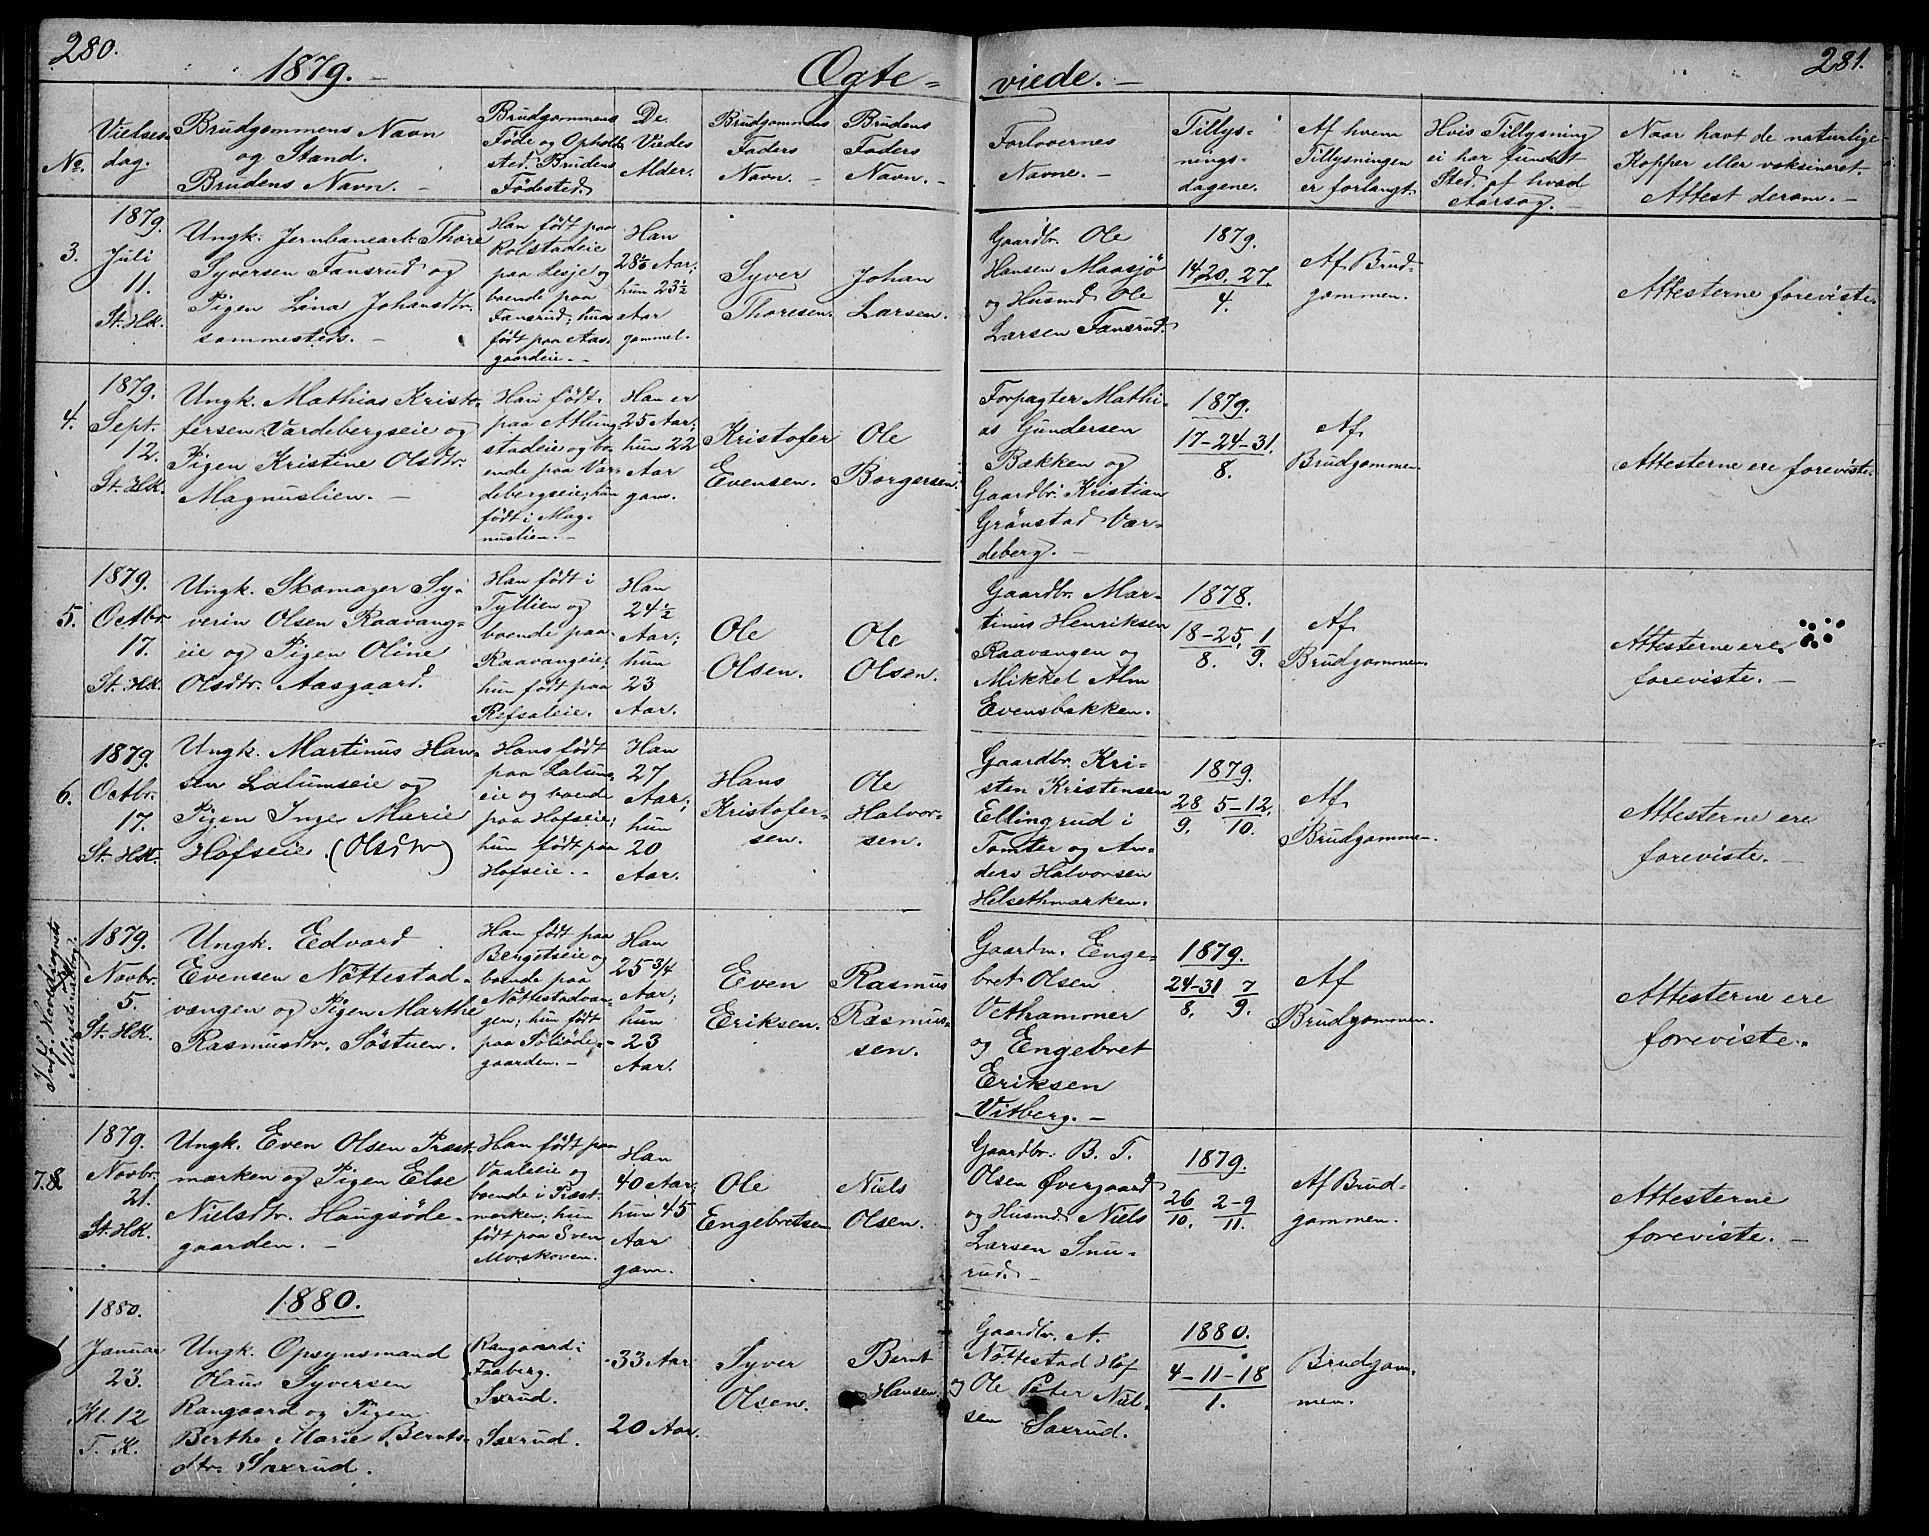 280.
1879. –
Ægte=
viede. –
281.
No.
Vielses
dag.
Brudgommens Navn
og Stand.
Brudens Navn. –
Brudgommens
Føde og Opholds
sted. Brudens
Fødested.
De
Viedes
Alder.
Brudgommens
Faders
Navn. –
Brudens
Faders
Navn. –
Forlovernes
Navne. –
Tillys-
nings-
dagene.
Af hvem
Tillysningen
er forlangt.
Hvis Tillysning
ei har fundet
Sted, af hvad
Aarsag.
Naar havt de naturlige
Kopper eller vaksineret.
Attest derom. –
3.
1879.
Juli
11.
St. HK.
Ungk. Jernbanearb. Thore
Syversen Fansrud og
Pigen Lina Johansdtr.
sammesteds. –
Han født paa
Rolstadeie
paa Lesje og
boende paa
Fansrud; hun
født paa Aas-
gaardeie. –
Han
Aar;
hun 23½
Aar
gammel.
Syver
Thoresen.
Johan
Larsen.
Gaardbr. Ole
Hansen Maasjø
og Husmd. Ole
Larsen Fansrud.
1879.
14 20. 27.
4.
Af Brud-
gommen.
Attesterne foreviste.
4.
1879.
Sept.
12.
St. HK.
Ungk. Mathias Kristo-
fersen Vardebergseie og
Pigen Kristine Olsdtr.
Magnuslien. –
Han født
paa Atlung-
stadeie og bo-
ende paa Var-
debergseie; hun
født i Mag-
nuslien. –
Han er
25 Aar;
hun 22
Aar
gam.
Kristofer
Evensen.
Ole
Borgersen.
Forpagter Mathi-
as Gundersen
Bækken og
Gaardbr. Kristian
Grønstad Var-
deberg. –
1879.
17–24–31.
8.
Af
Brudgommen.
Attesterne ere foreviste.
5.
1879.
Octbr.
17.
St. HK.
Ungk. Skomager Sy-
verin Olsen Raavang-
eie og Pigen Oline
Olsdtr. Aasgaard.
Han født i
Tyllien og
boende paa
Raavangeie;
hun født paa
Refsaleie.
Han
24½
Aar;
hun
23
Aar.
Ole
Olsen.
Ole
Olsen.
Gaardbr. Mar-
tinus Henriksen
Raavangen og
Mikkel Alm
Evensbakken.
1878.
18–25. 1
8. 9.
Af
Brudgommen.
Attesterne ere
foreviste. –
6.
1879.
Octbr.
17.
St. HK.
Ungk. Martinus Han-
sen Lalumseie og
Pigen Inge Marie
Hofseie. (Olsdtr)
Hans født
paa Lalums-
eie og boende
paa Hofseie;
hun født paa
Hofseie. –
Han
27
Aar;
hun
20
Aar.
Hans
Kristofer-
sen.
Ole
Halvor-
sen.
Gaardbr. Kri-
sten Kristensen
Ellingrud i
Tomter og An-
ders Halvorsen
Helsethmarken.
1879.
28 5–12.
9. 10.
Af
Brudgommen.
Attesterne ere
foreviste. –
1879.
Novbr.
5.
St. HK.
Ungk. Edvard
Evensen Nøttestad-
vangen og Pigen Marthe
Rasmusdtr. Søstuen.
Han født paa
Bengetseie og
boende paa
Nøttestadvan-
gen; hun født
paa Søliøde-
gaarden. –
Han
25 3/4
Aar;
hun
23
Aar.
Even
Eriksen.
Rasmus
Rasmus-
sen.
Gaardm. Enge-
bret Olsen
Vethammer
og Engebret
Eriksen
Vitberg. –
1879.
24–31 7
8. 9.
Af
Brudgommen.
Attesterne ere
foreviste.
7.8.
1879.
Novbr.
21.
St. HK.
Ungk. Even Olsen Præst-
marken og Pigen Else
Nielsdtr. Haugsøde-
gaarden. –
Han født paa
Vaaleeie og
boende i Præst-
marken; hun
født paa Sven
Morskoven.
Han
40 Aar;
hun 45
Aar
gam.
Ole
Engebretsen
Niels
Olsen.
Gaardbr. B. T.
Olsen Øvergaard
og Husmd. Niels
Larsen Snu-
rud. –
1879.
26 2–9
10. 11.
Af Brud-
gommen.
Attesterne
foreviste. –
1880.
1
1880.
Januar
23.
Kl. 12
T. K.
Ungk. Opsynsmand
Hans Syversen
Rangaard og Pigen
Berthe Marie Bernts-
dtr. Saxrud.
Rangaard i
Faaberg.
Saxrud.
Saxrud.
33 Aar
20 Aar.
Syver
Olsen.
Bernt
Hansen.
Gaardbr. A.
Nøttestad Hof
og Ole Peter Niel-
sen Saxrud.
1880.
4–11–18
1.
Brudgom-
men.